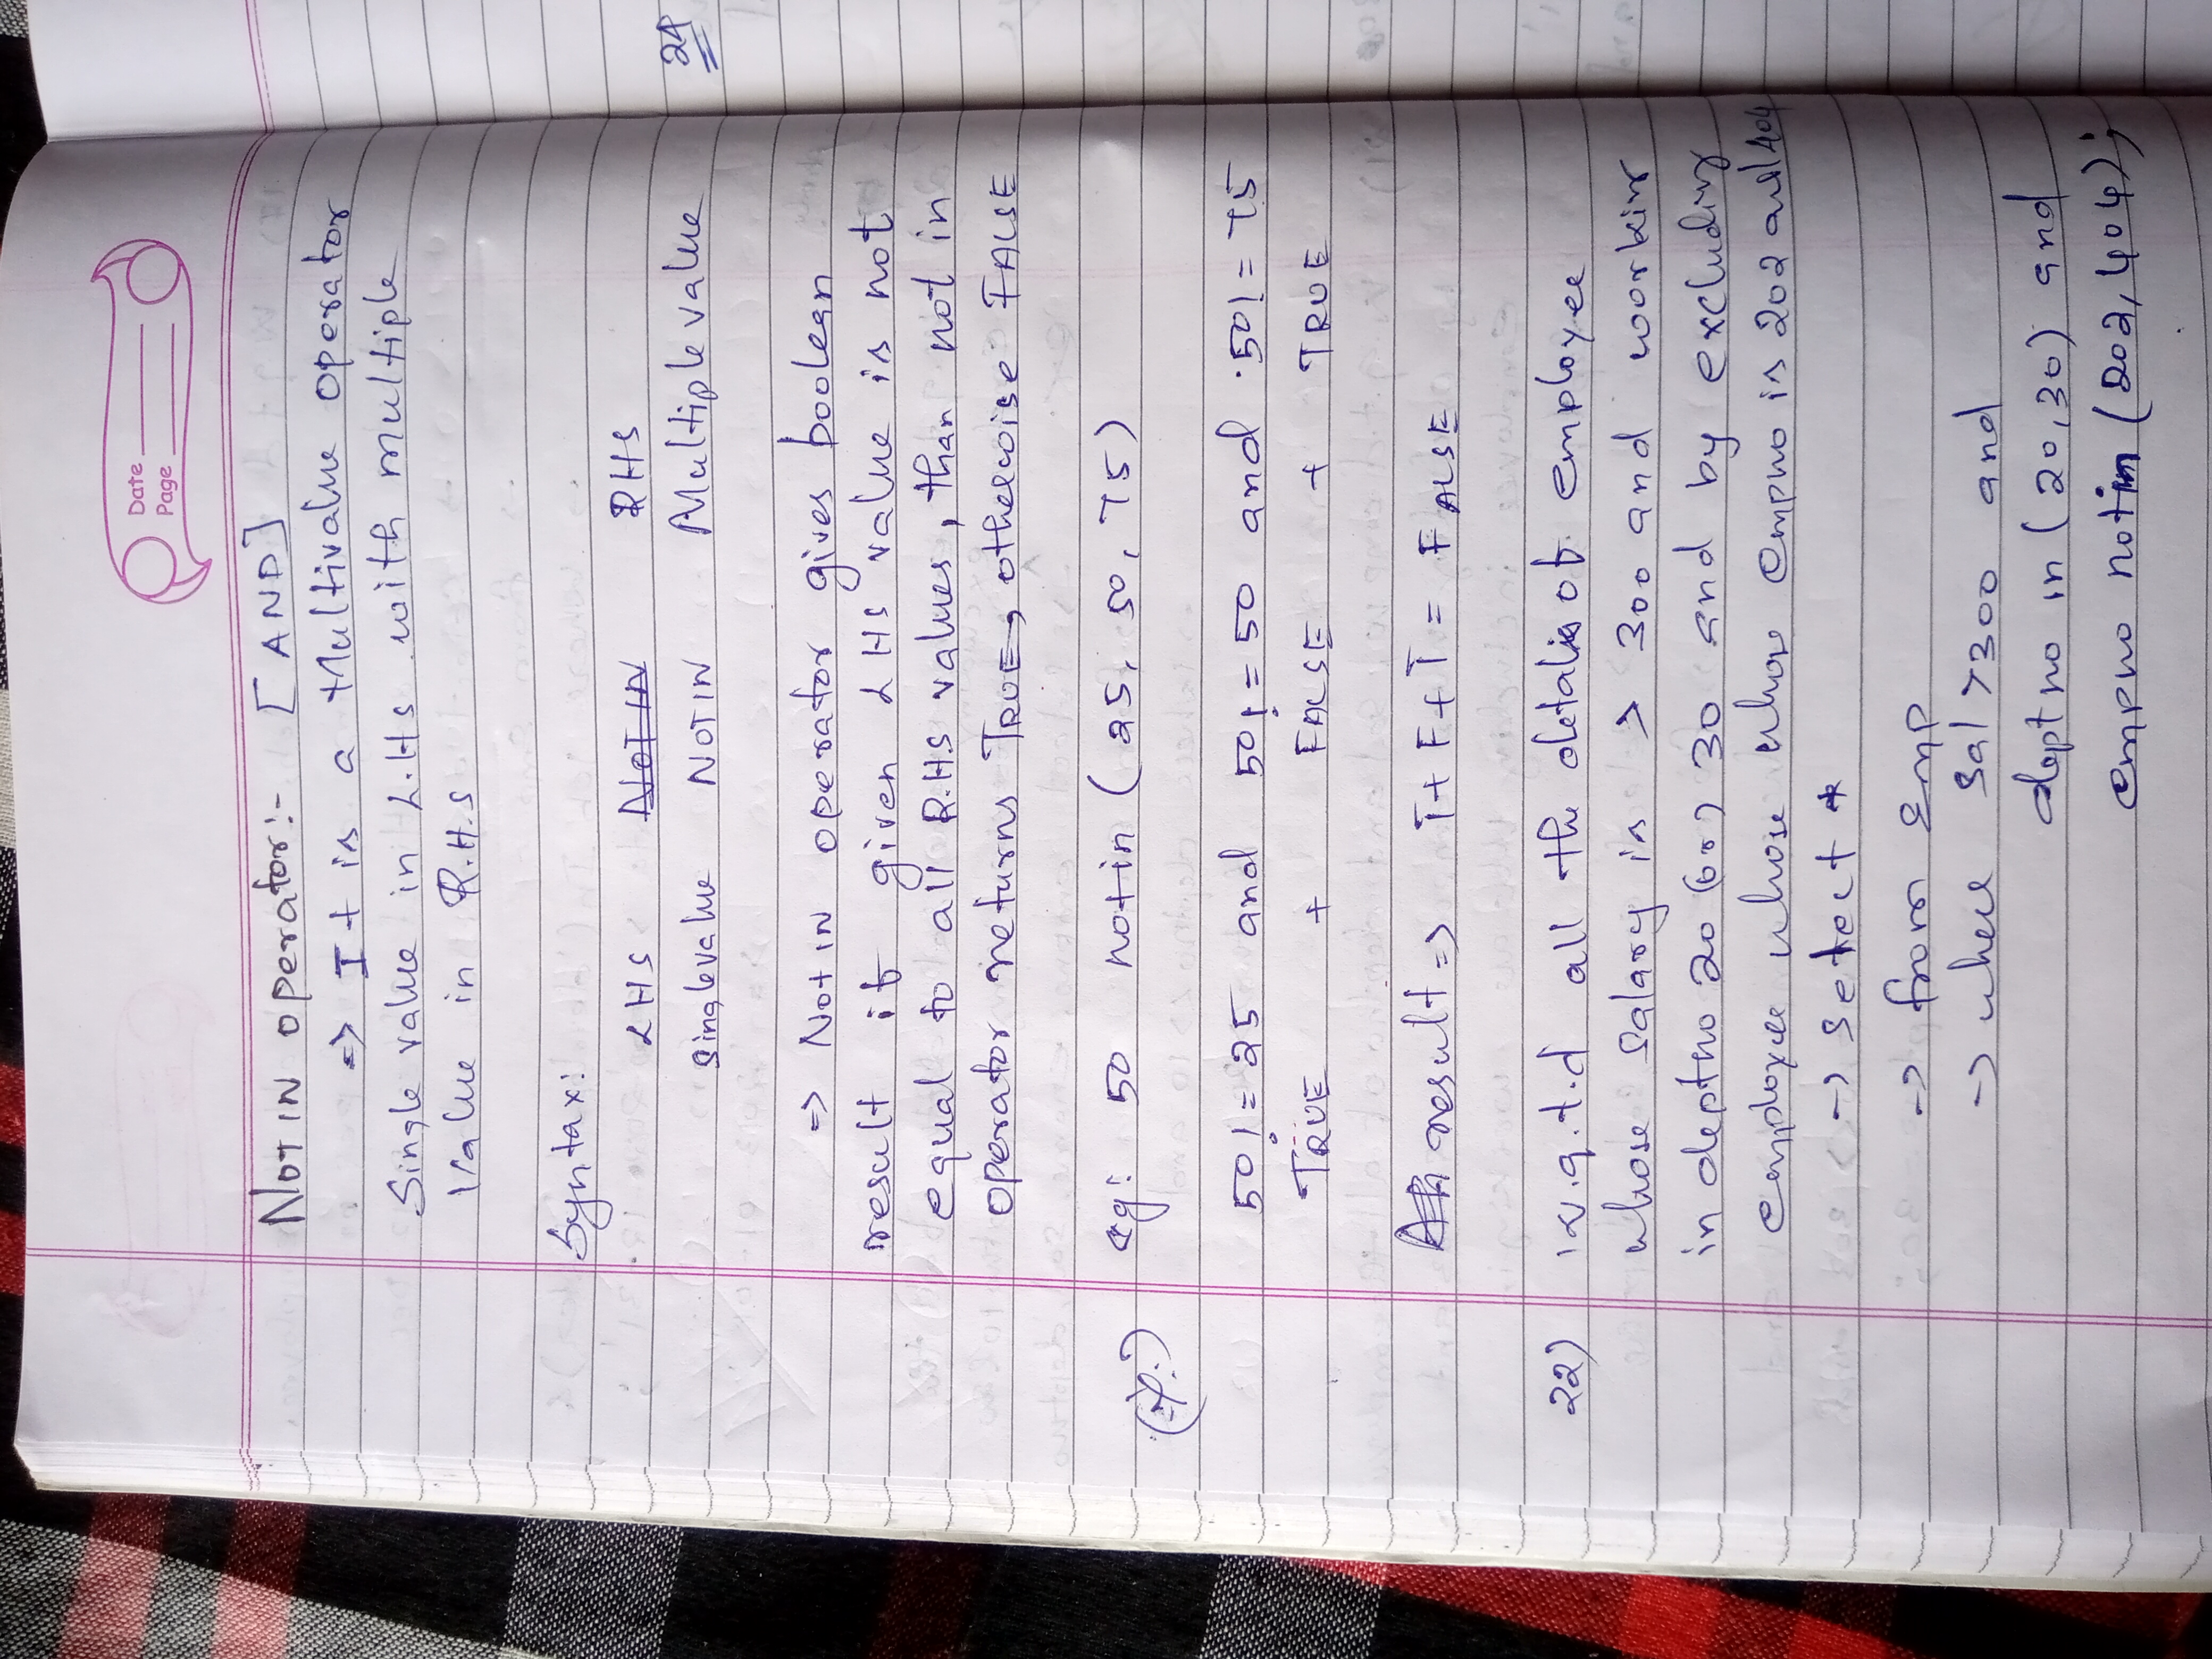 Date
Page
NOT IN operator:- [AND]
=> It is a Multivalue operator
Single value in L.Hs with multiple
Value in R.H.S
Syntax:
LHS NOT IN RHS
Singlevalue NOTIN Multiple value
24
=> Not IN operator gives boolean
result if given LHS value is not
equal to all R.H.S values, than not in
operator returns TRUE, otherwise FALSE
eg: 50 notin (25, 50, 75)
50!=25 and 50!=50 and 50!=75
TRUE + FALSE + TRUE
result => T+F+T = FALSE
22) w.q.t.d all the detalis of employee
whose salary is > 300 and workin
in deptno 20 (or) 30 and by excluding
employee whose whose empno is 202 and 404
-> Select *
-> from emp
-> where Sal >300 and
deptno in (20,30) and
empno notin (202,404);